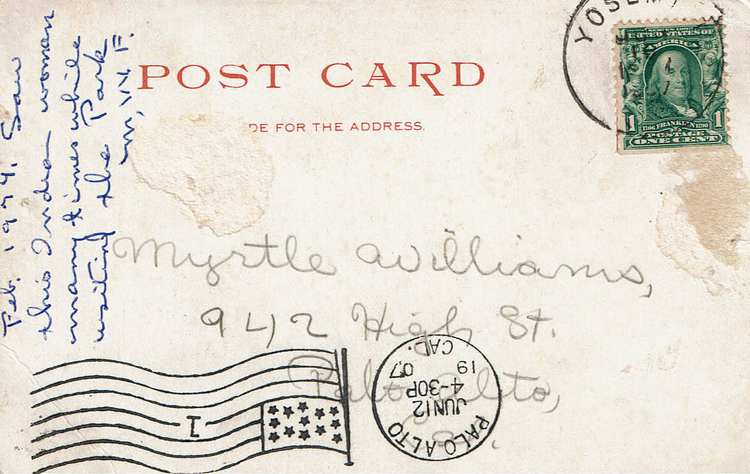 Feb. 1974. Saw
this Indian woman
many times while
visiting the Park
M.W.F.
POST CARD
DE FOR THE ADDRESS.
YOSEM
UNITED STATES OF
AMERICA
1
1
1706 FRANKLIN 1790
POSTAGE
ONE CENT
Myrtle Williams,
942 High St.
Palo Alto,
1
PALO ALTO
JUN 12
4-30P
19 07
CAL.